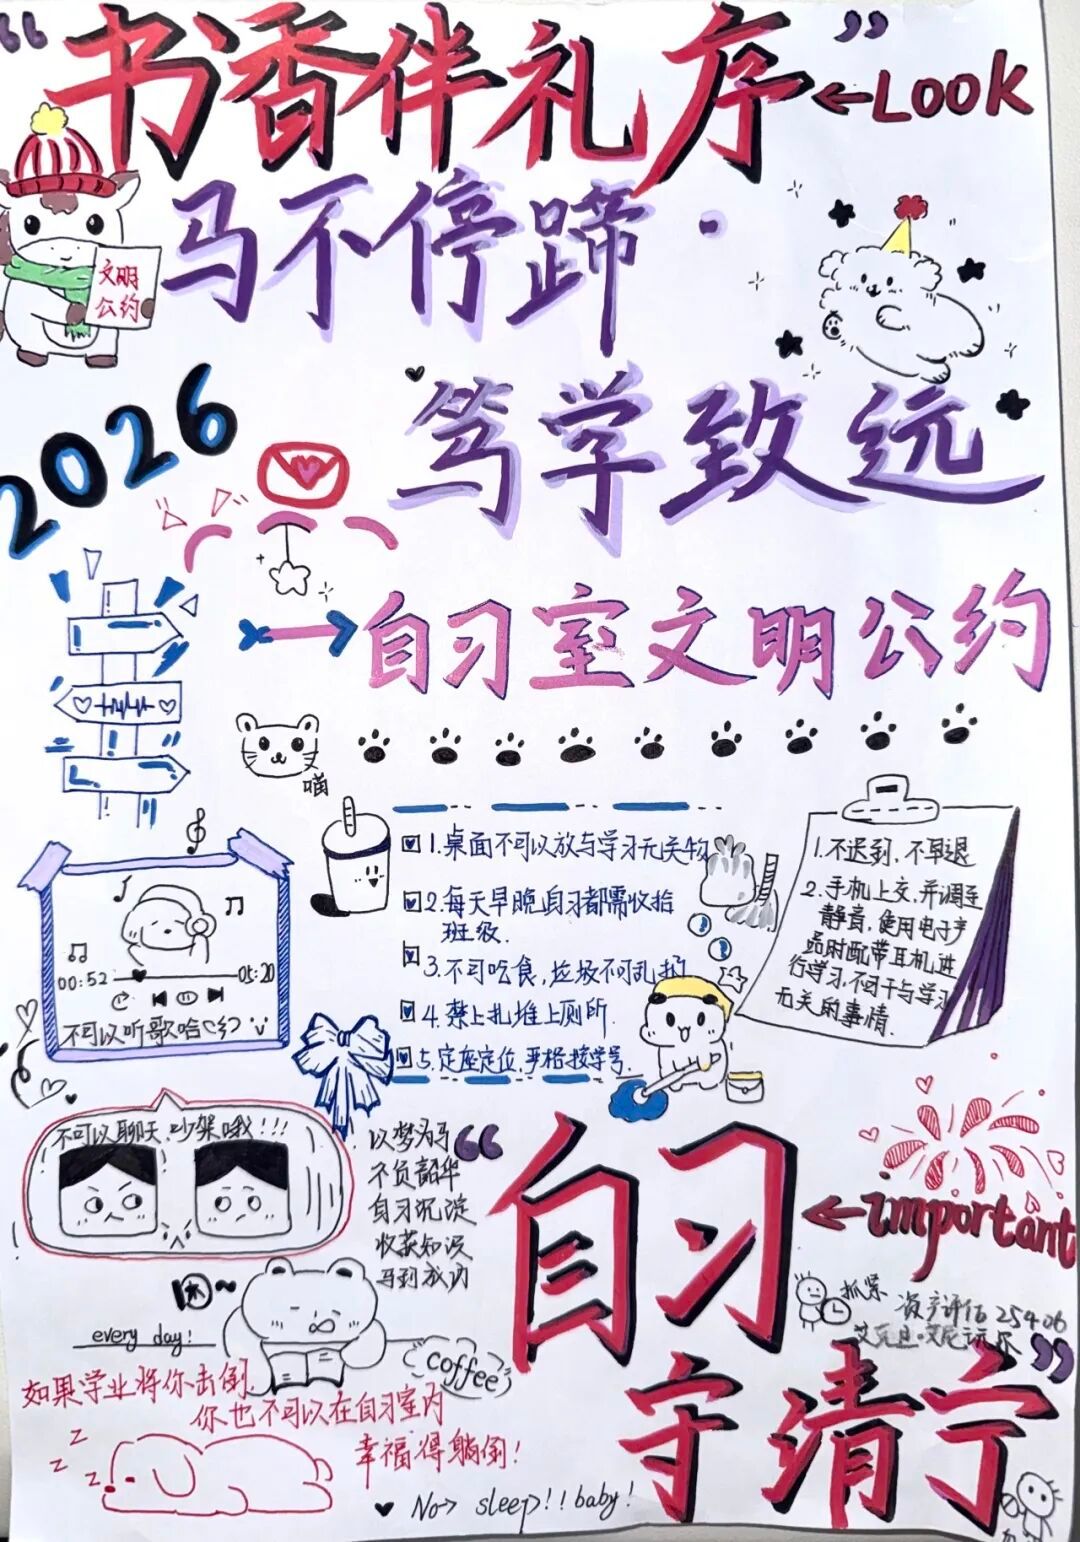 “书香伴礼序”
←LOOK
文明
公约
马不停蹄·
笃学致远
2026
自习室文明公约
喵
1.桌面不可以放与学习无关物
2.每天早晚自习都需收拾
班级.
3.不可吃食,垃圾不可乱扔
4.禁止扎堆上厕所.
5.定座定位,严格按学号.
1.不迟到.不早退
2.手机上交.并调至
静音,使用电子产
品时配带耳机,进
行学习,不可干与学习
无关的事情.
00:52
05:20
不可以听歌哈
不可以聊天.吵架哦!!!
以梦为马
不负韶华
自习沉淀
收获知识
马到成功
“自习
守清宁”
←important
抓紧
资产评估25406
every day!
coffee
如果学业将你击倒.
你也不可以在自习室内
幸福得躺倒!
z
z
z
No→ sleep!!baby!